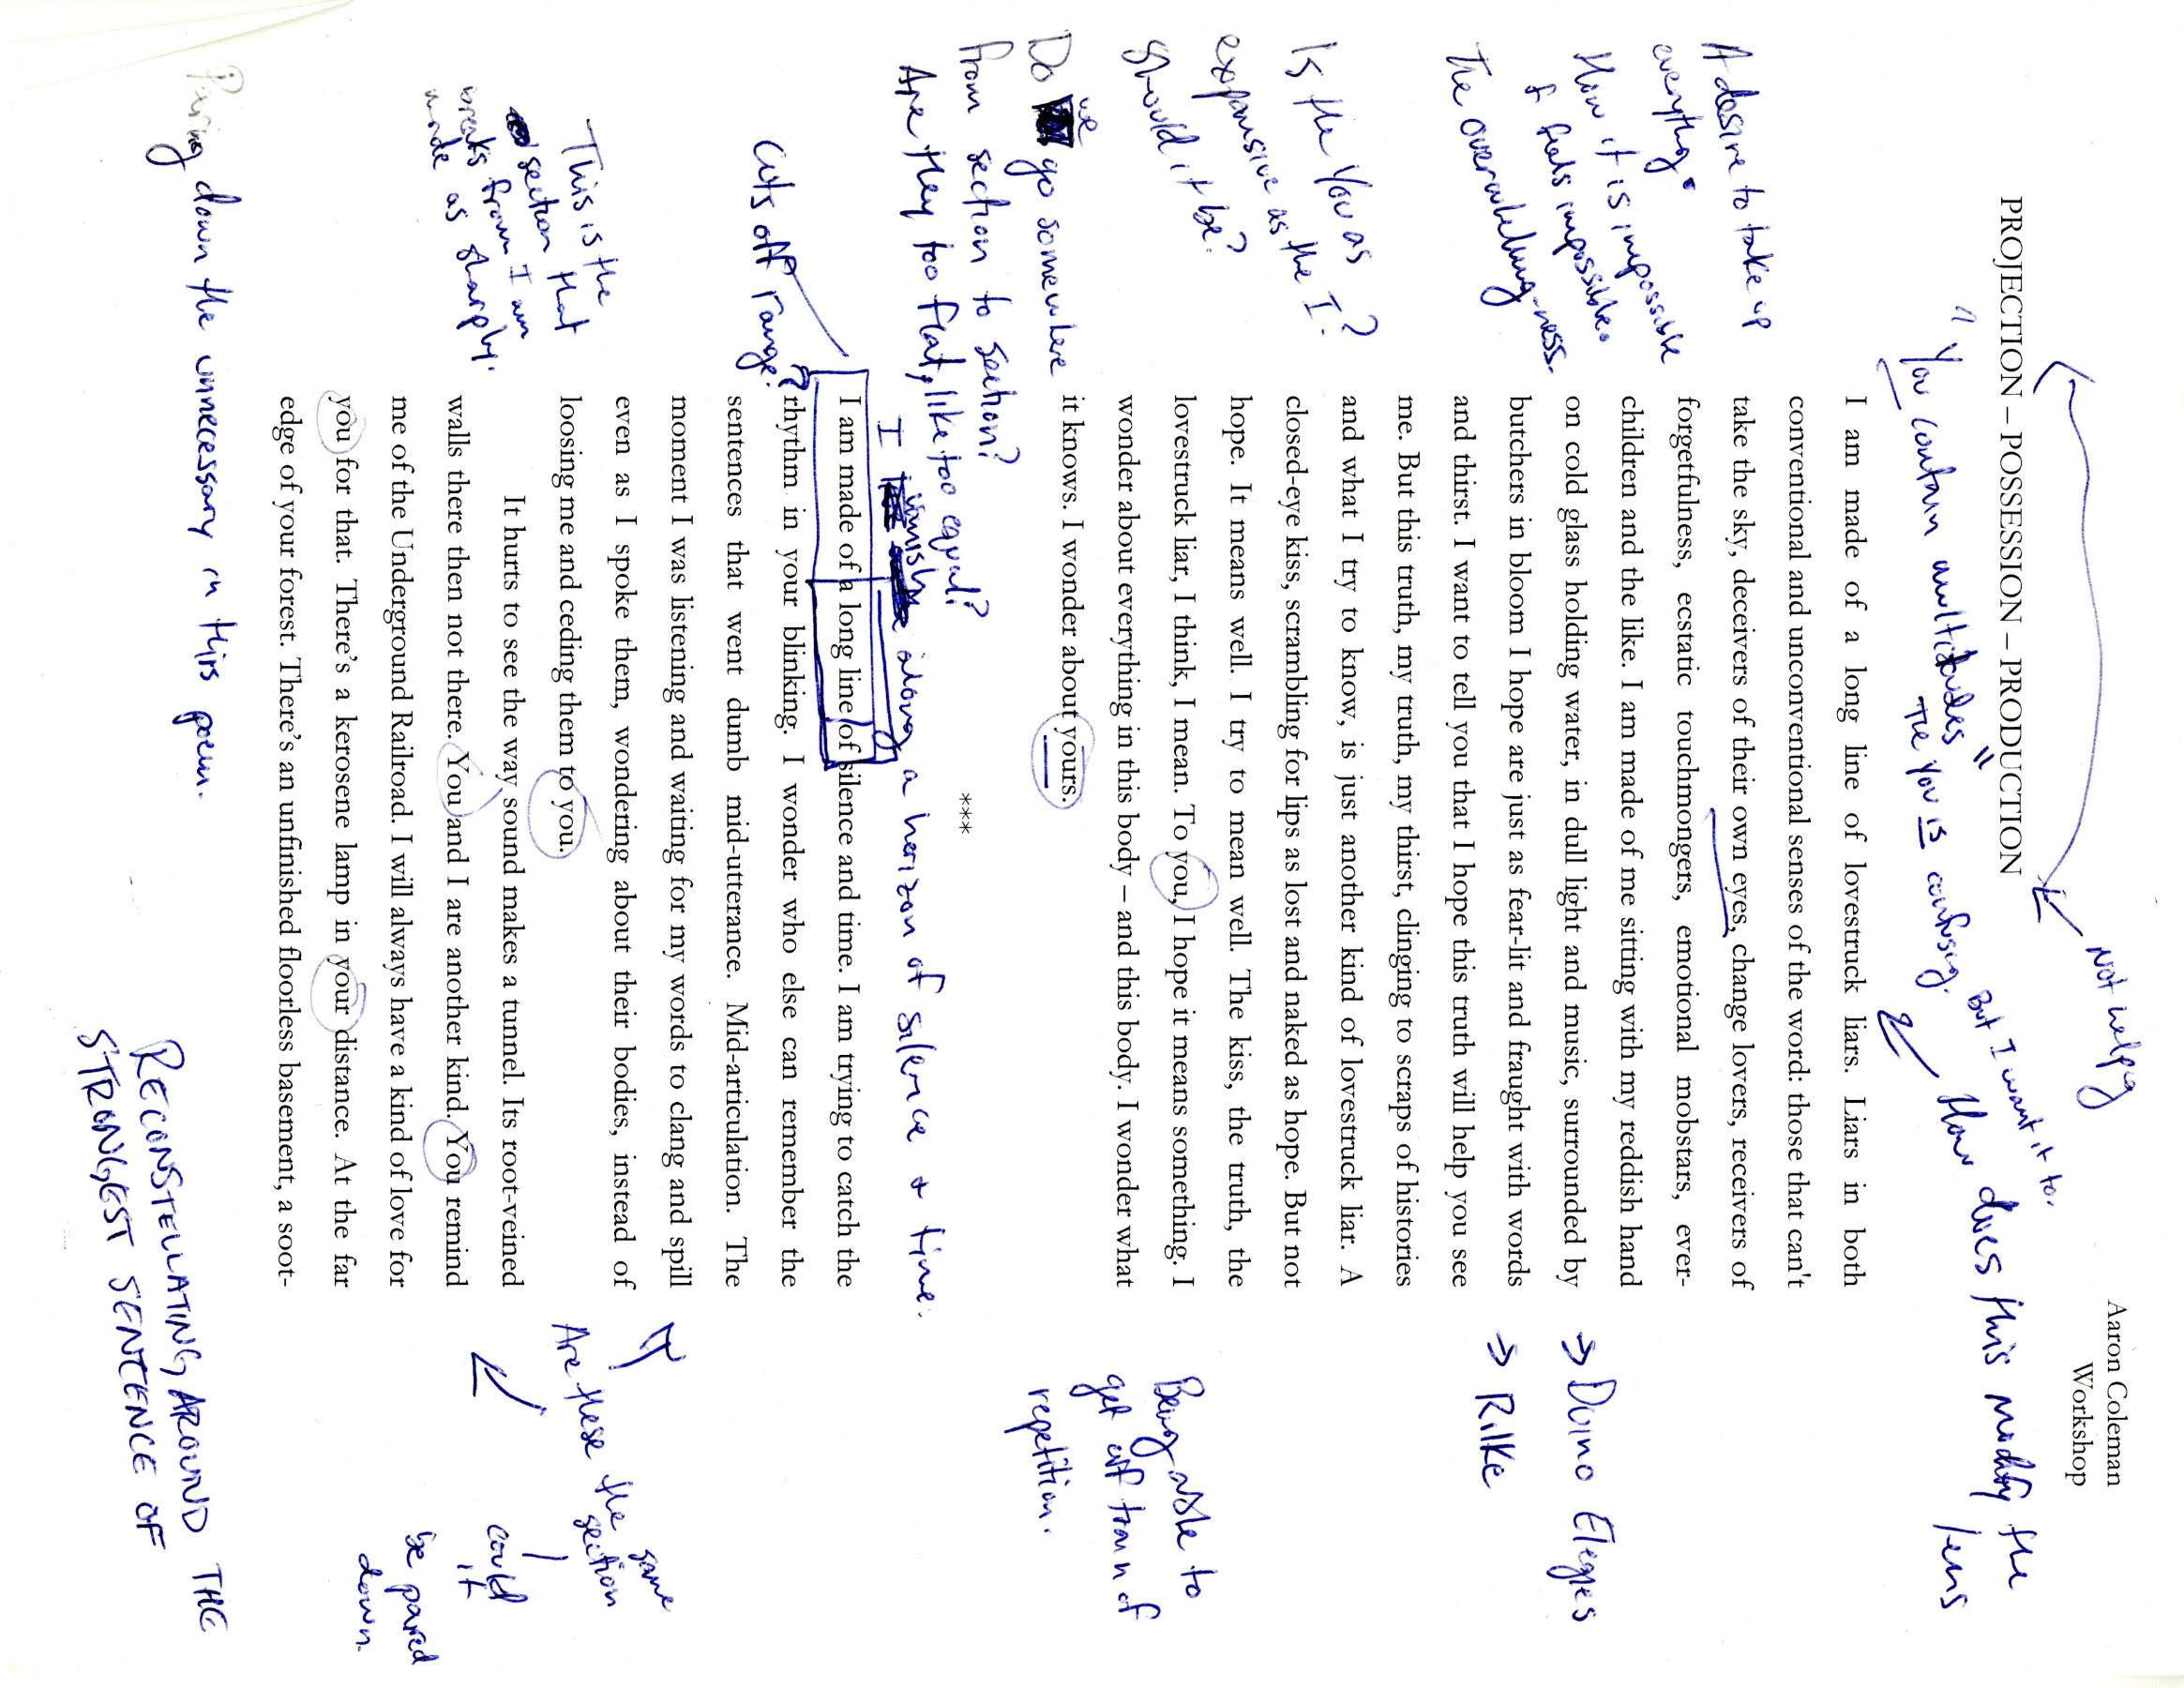 Aaron Coleman
Workshop
Not helpg
PROJECTION – POSSESSION – PRODUCTION
But I want it to.
"You contain multitudes"
The you is confusing.
How does this modify the lens
I am made of a long line of lovestruck liars. Liars in both
conventional and unconventional senses of the word: those that can't
take the sky, deceivers of their own eyes, change lovers, receivers of
forgetfulness, ecstatic touchmongers, emotional mobstars, ever-
children and the like. I am made of me sitting with my reddish hand
on cold glass holding water, in dull light and music, surrounded by
butchers in bloom I hope are just as fear-lit and fraught with words
and thirst. I want to tell you that I hope this truth will help you see
me. But this truth, my truth, my thirst, clinging to scraps of histories
and what I try to know, is just another kind of lovestruck liar. A
closed-eye kiss, scrambling for lips as lost and naked as hope. But not
hope. It means well. I try to mean well. The kiss, the truth, the
lovestruck liar, I think, I mean. To you, I hope it means something. I
wonder about everything in this body – and this body. I wonder what
it knows. I wonder about yours.
A desire to take up
everything.
How it is impossible
& feels impossible.
The overwhelming-ness.
→ Duino Elegies
→ Rilke
Is the You as
expansive as the I?
Should it be?
Being able to
get off train of
repetition.
Do we go somewhere
from section to section?
Are they too flat, like too equal?
***
I vanish along a horizon of silence + time.
Cuts off range?
I am made of a long line of silence and time. I am trying to catch the
rhythm in your blinking. I wonder who else can remember the
sentences that went dumb mid-utterance. Mid-articulation. The
moment I was listening and waiting for my words to clang and spill
even as I spoke them, wondering about their bodies, instead of
loosing me and ceding them to you.
It hurts to see the way sound makes a tunnel. Its root-veined
walls there then not there. You and I are another kind. You remind
me of the Underground Railroad. I will always have a kind of love for
you for that. There's a kerosene lamp in your distance. At the far
edge of your forest. There's an unfinished floorless basement, a soot-
This is the
section that
breaks from I am
made as sharply.
Are these the same
section
could
it
be pared
down.
Paring down the unnecessary in this poem.
RECONSTELLATING AROUND THE
STRONGEST SENTENCE OF